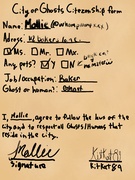 City of Ghosts Citizenship form
Name: Mollie
Address:
Ms. Mr. Mx.
Any pets? Y N
Job/occupation: Baker
Ghost or human?: Ghost
I, Mollie, agree to follow the laws of the
city and to respect all Ghosts/Humans that
reside in the city.
Mollie KitKat89
Signature KitKat89